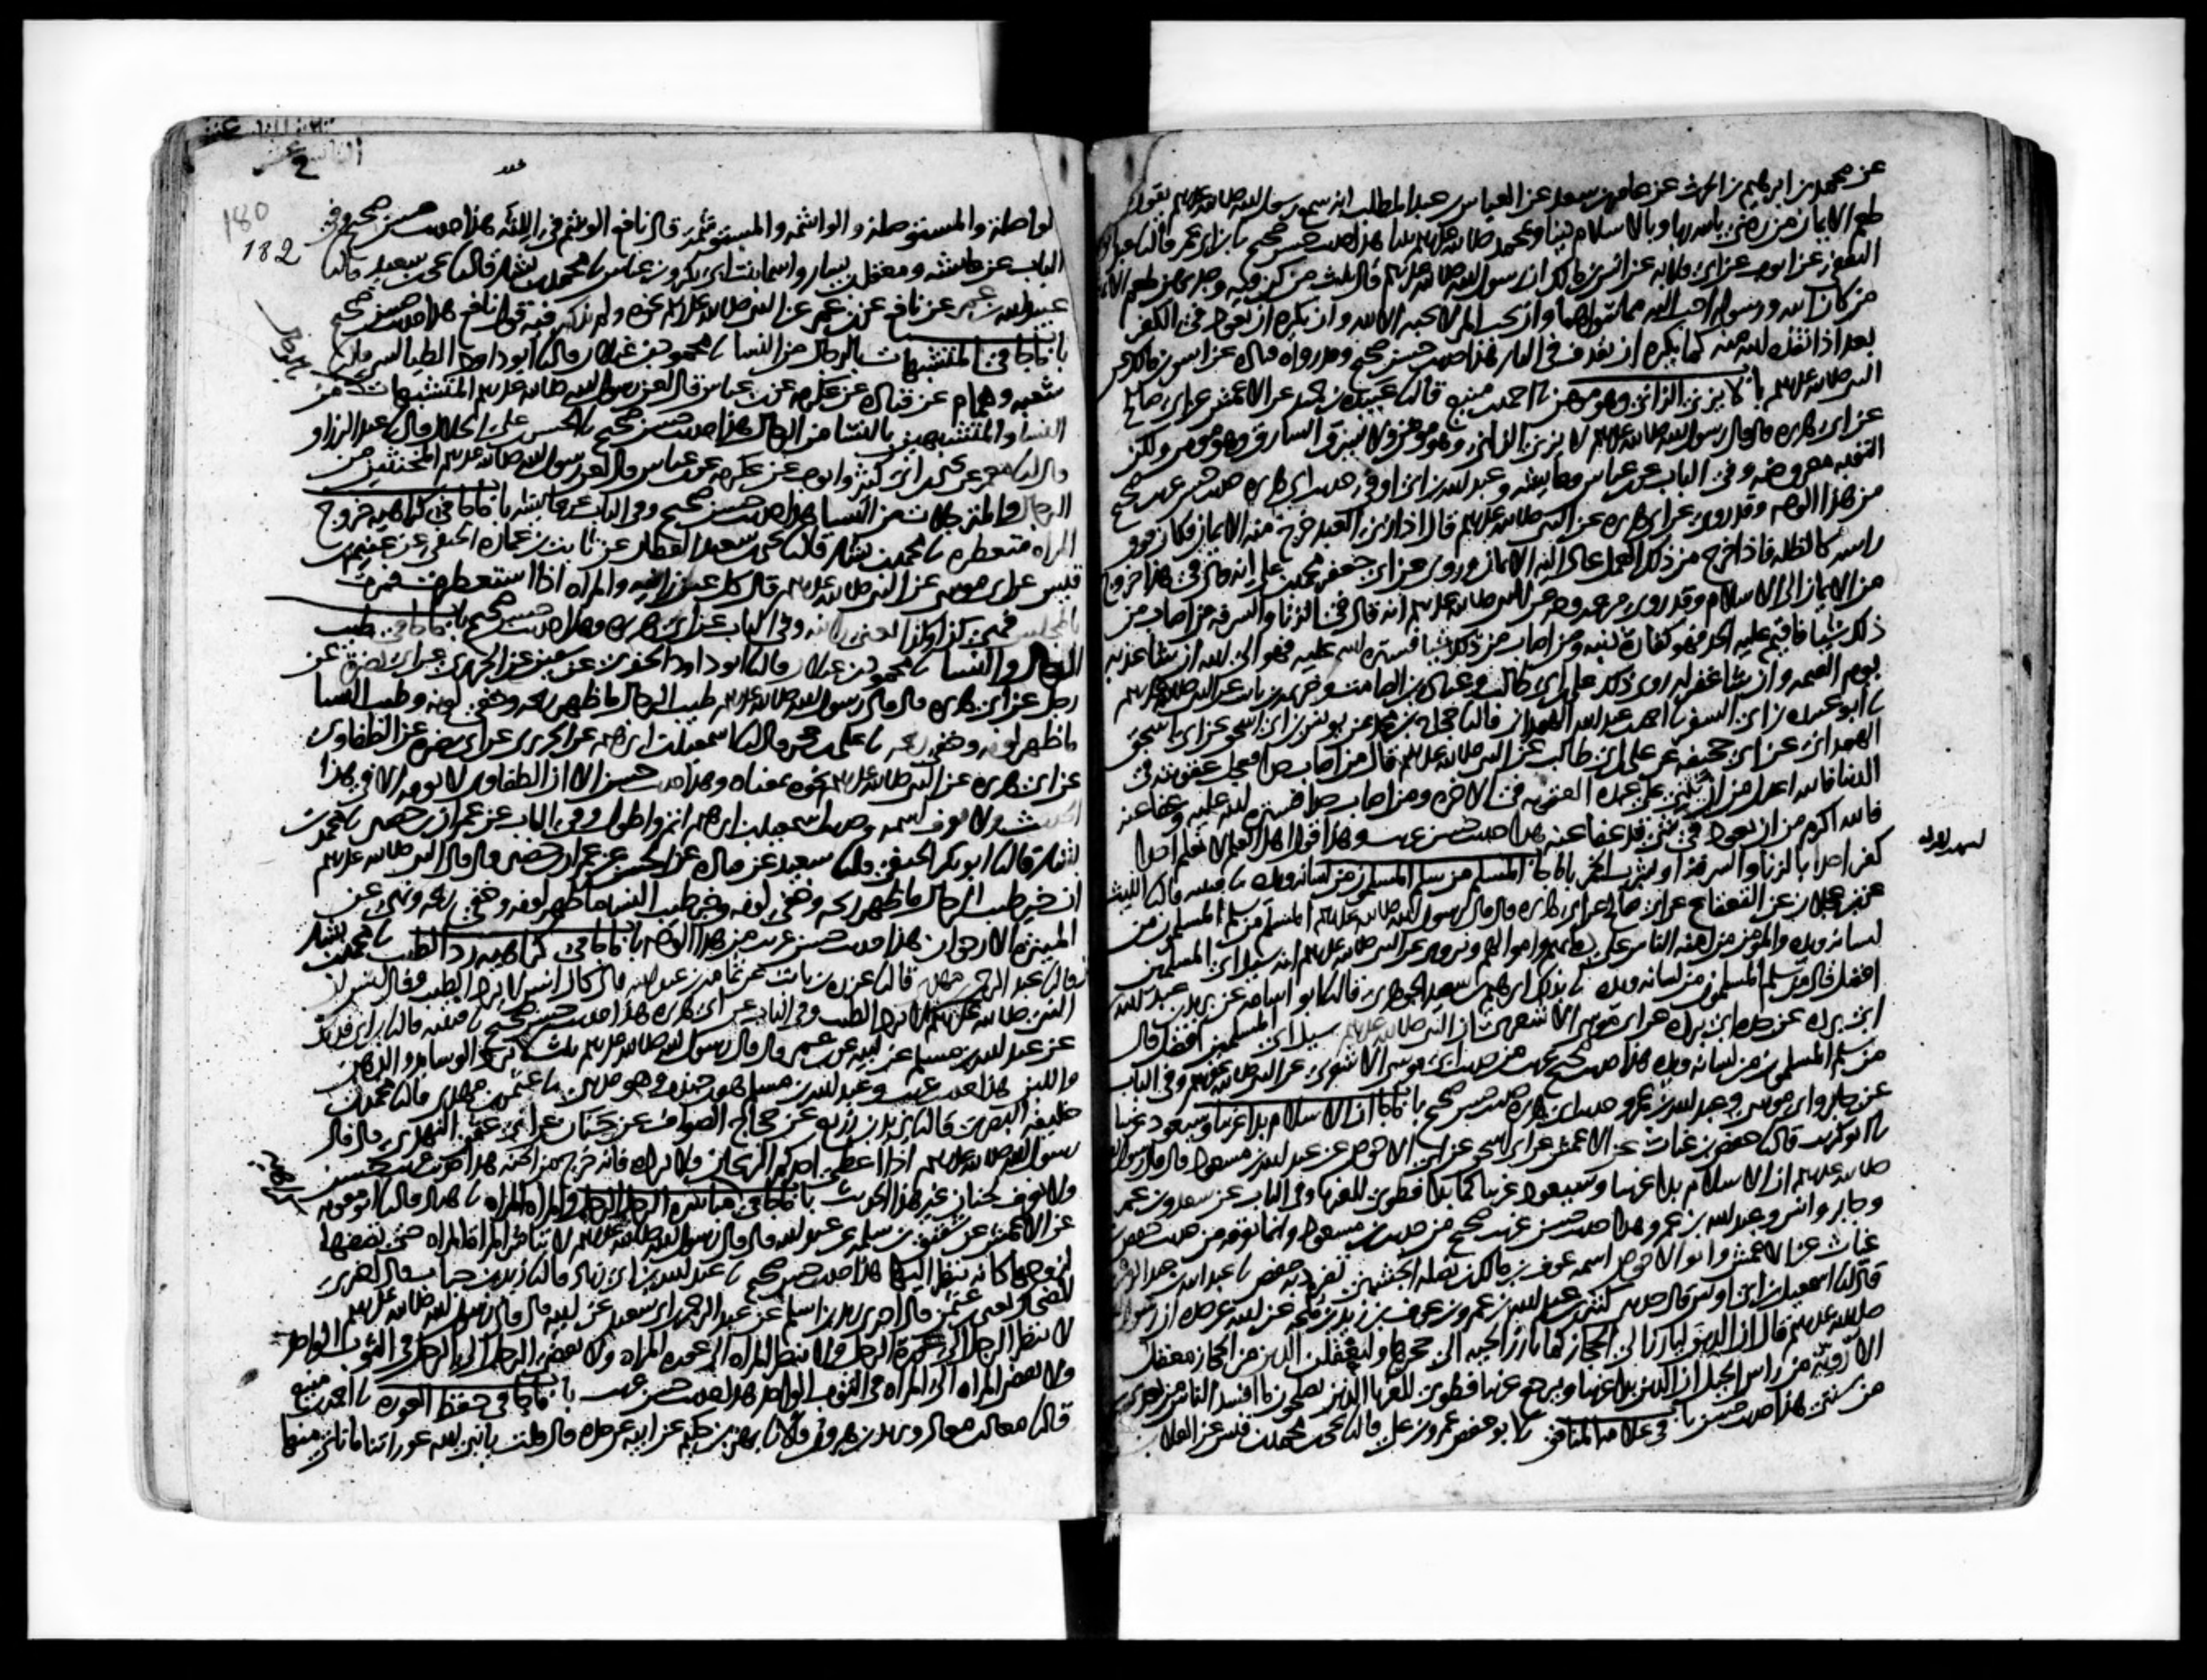 عن محمد بن ابرهيم بن الحرث عن عامر بن سعد عن العباس بن عبد المطلب انه سمع رسول الله صلى الله عليه وسلم يقول
طعم الايمان من رضي بالله ربا وبالاسلام دينا وبمحمد صلى الله عليه وسلم نبيا هذا حديث حسن صحيح نا ابن ابي عمر قال نا عبد الوهاب
الثقفي عن ايوب عن ابي قلابه عن انس بن مالك ان رسول الله صلى الله عليه وسلم قال ثلث من كن فيه وجد بهن طعم الايمان
من كان الله ورسوله احب اليه مما سواهما وان يحب المرء لا يحبه الا لله وان يكره ان يعود في الكفر
بعد اذ انقذه الله منه كما يكره ان يقذف في النار هذا حديث حسن صحيح وقد رواه قتاده عن انس بن مالك عن
النبي صلى الله عليه وسلم باب لا يزني الزاني وهو مومن نا احمد بن منيع قال نا عبيده بن حميد عن الاعمش عن ابي صالح
عن ابي هريره قال قال رسول الله صلى الله عليه وسلم لا يزني الزاني وهو مومن ولا يسرق السارق وهو مومن ولكن
التوبه معروضه وفي الباب عن ابن عباس وعايشه وعبد الله بن ابي اوفى حديث ابي هريره حديث حسن غريب صحيح
من هذا الوجه وقد روي عن ابي هريره عن النبي صلى الله عليه وسلم قال اذا زنى العبد خرج منه الايمان فكان فوق
راسه كالظله فاذا خرج من ذلك العمل عاد اليه الايمان وروي عن ابي جعفر محمد بن علي انه قال في هذا خروج
من الايمان الى الاسلام وقد روي من غير وجه عن النبي صلى الله عليه وسلم انه قال في الزنا والسرقه من اصاب من
ذلك شيا فاقيم عليه الحد فهو كفارة ذنبه ومن اصاب من ذلك شيا فستره الله عليه فهو الى الله ان شا عذبه
يوم القيمه وان شا غفر له روى ذلك علي بن ابي طالب وعباده بن الصامت وخزيمه بن ثابت عن النبي صلى الله عليه وسلم
نا ابو عبيده بن ابي السفر نا احمد بن عبد الله الهمداني قال نا حجاج بن محمد عن يونس بن ابي اسحق عن ابي اسحق
الهمداني عن ابي جحيفه عن علي بن ابي طالب عن النبي صلى الله عليه وسلم قال من اصاب حدا فعجل عقوبته في
الدنيا فالله اعدل من ان يثني على عبده العقوبه في الاخره ومن اصاب حدا فستره الله عليه وعفا عنه
فالله اكرم من ان يعود في شي قد عفا عنه هذا حديث حسن غريب وهذا قول اهل العلم لا نعلم احدا
كفر احدا بالزنا والسرقه او شرب الخمر باب ما جا المسلم من سلم المسلمون من لسانه ويده نا قتيبه قال نا الليث
عن ابن عجلان عن القعقاع عن ابي صالح عن ابي هريره قال قال رسول الله صلى الله عليه وسلم المسلم من سلم المسلمون من
لسانه ويده والمؤمن من امنه الناس على دمايهم واموالهم ويروى عن النبي صلى الله عليه وسلم انه سيل اي المسلمين
افضل قال من سلم المسلمون من لسانه ويده نا بذلك ابرهيم بن سعيد الجوهري قال نا ابو اسامه عن بريد بن عبد الله
ابن ابي برده عن جده ابي برده عن ابي موسى الاشعري ان النبي صلى الله عليه وسلم سيل اي المسلمين افضل قال
من سلم المسلمون من لسانه ويده هذا حديث صحيح غريب من حديث ابي موسى الاشعري عن النبي صلى الله عليه وسلم وفي الباب
عن جابر وابي موسى وعبد الله بن عمرو حديث ابي هريره حديث حسن صحيح باب ما جا ان الاسلام بدا غريبا وسيعود غريبا
نا ابو كريب قال نا حفص بن غياث عن الاعمش عن ابي اسحق عن ابي الاحوص عن عبد الله بن مسعود قال قال رسول الله
صلى الله عليه وسلم ان الاسلام بدا غريبا وسيعود غريبا كما بدا فطوبى للغربا وفي الباب عن سعد وابن عمر
وجابر وانس وعبد الله بن عمرو هذا حديث حسن غريب صحيح من حديث ابن مسعود وانما نعرفه من حديث حفص بن
غياث عن الاعمش وابو الاحوص اسمه عوف بن مالك بن نضله الجشمي تفرد به حفص نا عبد الله بن عبد الرحمن
قال نا اسمعيل بن ابي اويس قال حدثني كثير بن عبد الله بن عمرو بن عوف بن زيد بن ملحه عن ابيه عن جده ان رسول الله
صلى الله عليه وسلم قال ان الدين ليارز الى الحجاز كما تارز الحيه الى جحرها وليعقلن الدين من الحجاز معقل
الاروية من راس الجبل ان الدين بدا غريبا ويرجع غريبا فطوبى للغربا الذين يصلحون ما افسد الناس من بعدي
من سنتي هذا حديث حسن باب في علامه المنافق نا ابو حفص عمرو بن علي قال نا يحيى بن محمد بن قيس عن العلا
180
182
الواصلة والمستوصلة والواشمه والمستوشمه قال نافع الوشم في اللثه هذا حديث حسن صحيح وفي
الباب عن عايشه ومعقل بن يسار واسما بنت ابي بكر وابن عباس نا محمد بن بشار قال نا يحيى بن سعيد قال نا
عبيد الله بن عمر عن نافع عن ابن عمر عن النبي صلى الله عليه وسلم نحوه ولم يذكر فيه قول نافع هذا حديث حسن صحيح
باب ما جا في المتشبهات بالرجال من النسا نا محمود بن غيلان قال نا ابو داود الطيالسي قال نا
شعبه وهمام عن قتاده عن عكرمه عن ابن عباس قال لعن رسول الله صلى الله عليه وسلم المتشبهات من
النسا والمتشبهين بالنسا من الرجال هذا حديث حسن صحيح نا الحسن بن علي الخلال قال نا عبد الرزاق
قال نا معمر عن يحيى بن ابي كثير وايوب عن عكرمه عن ابن عباس قال لعن رسول الله صلى الله عليه وسلم المخنثين من
الرجال والمترجلات من النسا هذا حديث حسن صحيح وفي الباب عن عايشه باب ما جا في كراهيه خروج
المراه متعطره نا محمد بن بشار قال نا يحيى بن سعيد القطان عن ثابت بن عماره الحنفي عن غنيم بن
قيس عن ابي موسى عن النبي صلى الله عليه وسلم قال كل عين زانيه والمراه اذا استعطرت فمرت
بالمجلس فهي كذا وكذا يعني زانيه وفي الباب عن ابي هريره وهذا حديث حسن صحيح باب ما جا في طيب
الرجال والنسا نا محمود بن غيلان قال نا ابو داود الحفري عن سفين عن الجريري عن ابي نضرة عن
رجل عن ابي هريره قال قال رسول الله صلى الله عليه وسلم طيب الرجال ما ظهر ريحه وخفي لونه وطيب النسا
ما ظهر لونه وخفي ريحه نا علي بن حجر قال نا اسمعيل بن ابرهيم عن الجريري عن ابي نضره عن الطفاوي
عن ابي هريره عن النبي صلى الله عليه وسلم نحوه بمعناه وهذا حديث حسن الا ان الطفاوي لا نعرفه الا في هذا
الحديث ولا نعرف اسمه وحديث اسمعيل بن ابرهيم اتم واطول وفي الباب عن عمران بن حصين نا محمد بن
بشار قال نا ابو بكر الحنفي قال نا سعيد عن قتاده عن الحسن عن عمران بن حصين قال قال النبي صلى الله عليه وسلم
ان خير طيب الرجال ما ظهر ريحه وخفي لونه وخير طيب النسا ما ظهر لونه وخفي ريحه ونهى عن
الميثرة الارجوان هذا حديث حسن غريب من هذا الوجه باب ما جا في كراهيه رد الطيب نا محمد بن بشار
قال نا عبد الرحمن بن مهدي قال نا عزره بن ثابت عن ثمامه بن عبد الله قال كان انس لا يرد الطيب وقال انس ان
النبي صلى الله عليه وسلم كان لا يرد الطيب وفي الباب عن ابي هريره هذا حديث حسن صحيح نا قتيبه قال نا ابن ابي فديك
عن عبد الله بن مسلم عن ابيه عن ابن عمر قال قال رسول الله صلى الله عليه وسلم ثلث لا ترد الوسايد والدهن
واللبن هذا حديث غريب وعبد الله بن مسلم هو ابن جندب وهو مديني نا عثمن بن مهدي قال نا محمد بن
خليفه البصري قال نا يزيد بن زريع عن حجاج الصواف عن حنان عن ابي عثمن النهدي قال قال
رسول الله صلى الله عليه وسلم اذا اعطي احدكم الريحان فلا يرده فانه خرج من الجنه هذا حديث غريب حسن
ولا نعرف لحنان غير هذا الحديث باب ما جا في مباشره الرجل الرجل والمراه المراه نا هناد قال نا ابو معويه
عن الاعمش عن شقيق بن سلمه عن عبد الله قال قال رسول الله صلى الله عليه وسلم لا تباشر المراة المراه حتى تصفها
لزوجها كانه ينظر اليها هذا حديث حسن صحيح نا عبد الله بن ابي زياد قال نا زيد بن حباب قال اخبرني
الضحاك يعني ابن عثمن قال اخبرني زيد بن اسلم عن عبد الرحمن بن ابي سعيد عن ابيه قال قال رسول الله صلى الله عليه وسلم
لا ينظر الرجل الى عورة الرجل ولا تنظر المراه الى عوره المراه ولا يفضي الرجل الى الرجل في الثوب الواحد
ولا تفضي المراه الى المراه في الثوب الواحد هذا حديث حسن غريب باب ما جا في حفظ العوره نا احمد بن منيع
قال نا معاذ بن معاذ ويزيد بن هرون قالا نا بهز بن حكيم عن ابيه عن جده قال قلت يا نبي الله عوراتنا ما ناتي منها